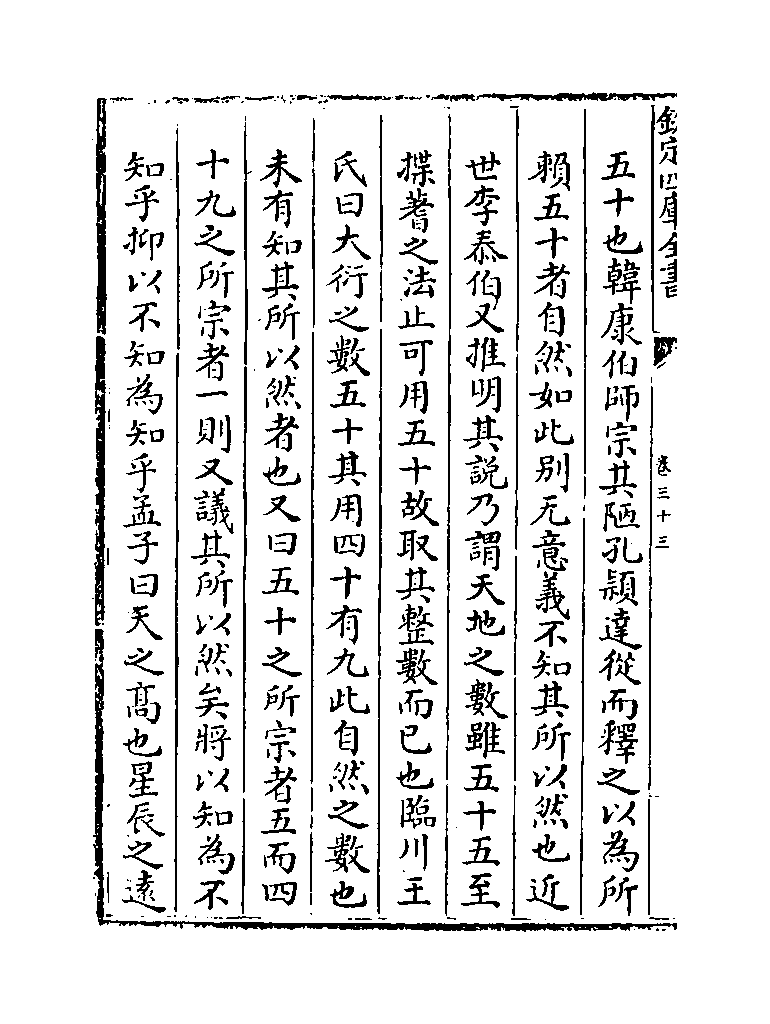 欽定四庫全書
卷三十三
五十也韓康伯師宗其陋孔頴達從而釋之以為所
賴五十者自然如此别无意義不知其所以然也近
世李泰伯又推明其説乃謂天地之數雖五十五至
揲蓍之法止可用五十故取其整數而已也臨川王
氏曰大衍之數五十其用四十有九此自然之數也
未有知其所以然者也又曰五十之所宗者五而四
十九之所宗者一則又議其所以然矣將以知為不
知乎抑以不知為知乎孟子曰天之髙也星辰之遠